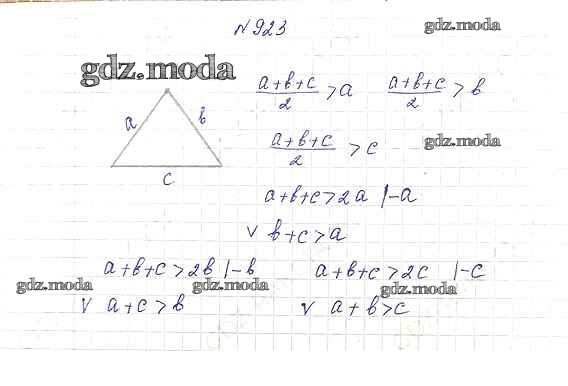 N 923
gdz.moda
gdz.moda
(a+b+c)/2 > a (a+b+c)/2 > b
a b
(a+b+c)/2 > c
gdz.moda
c
a+b+c>2a |-a
v b+c>a
a+b+c>2b |-b a+b+c>2c |-c
gdz.moda gdz.moda gdz.moda
v a+c>b v a+b>c